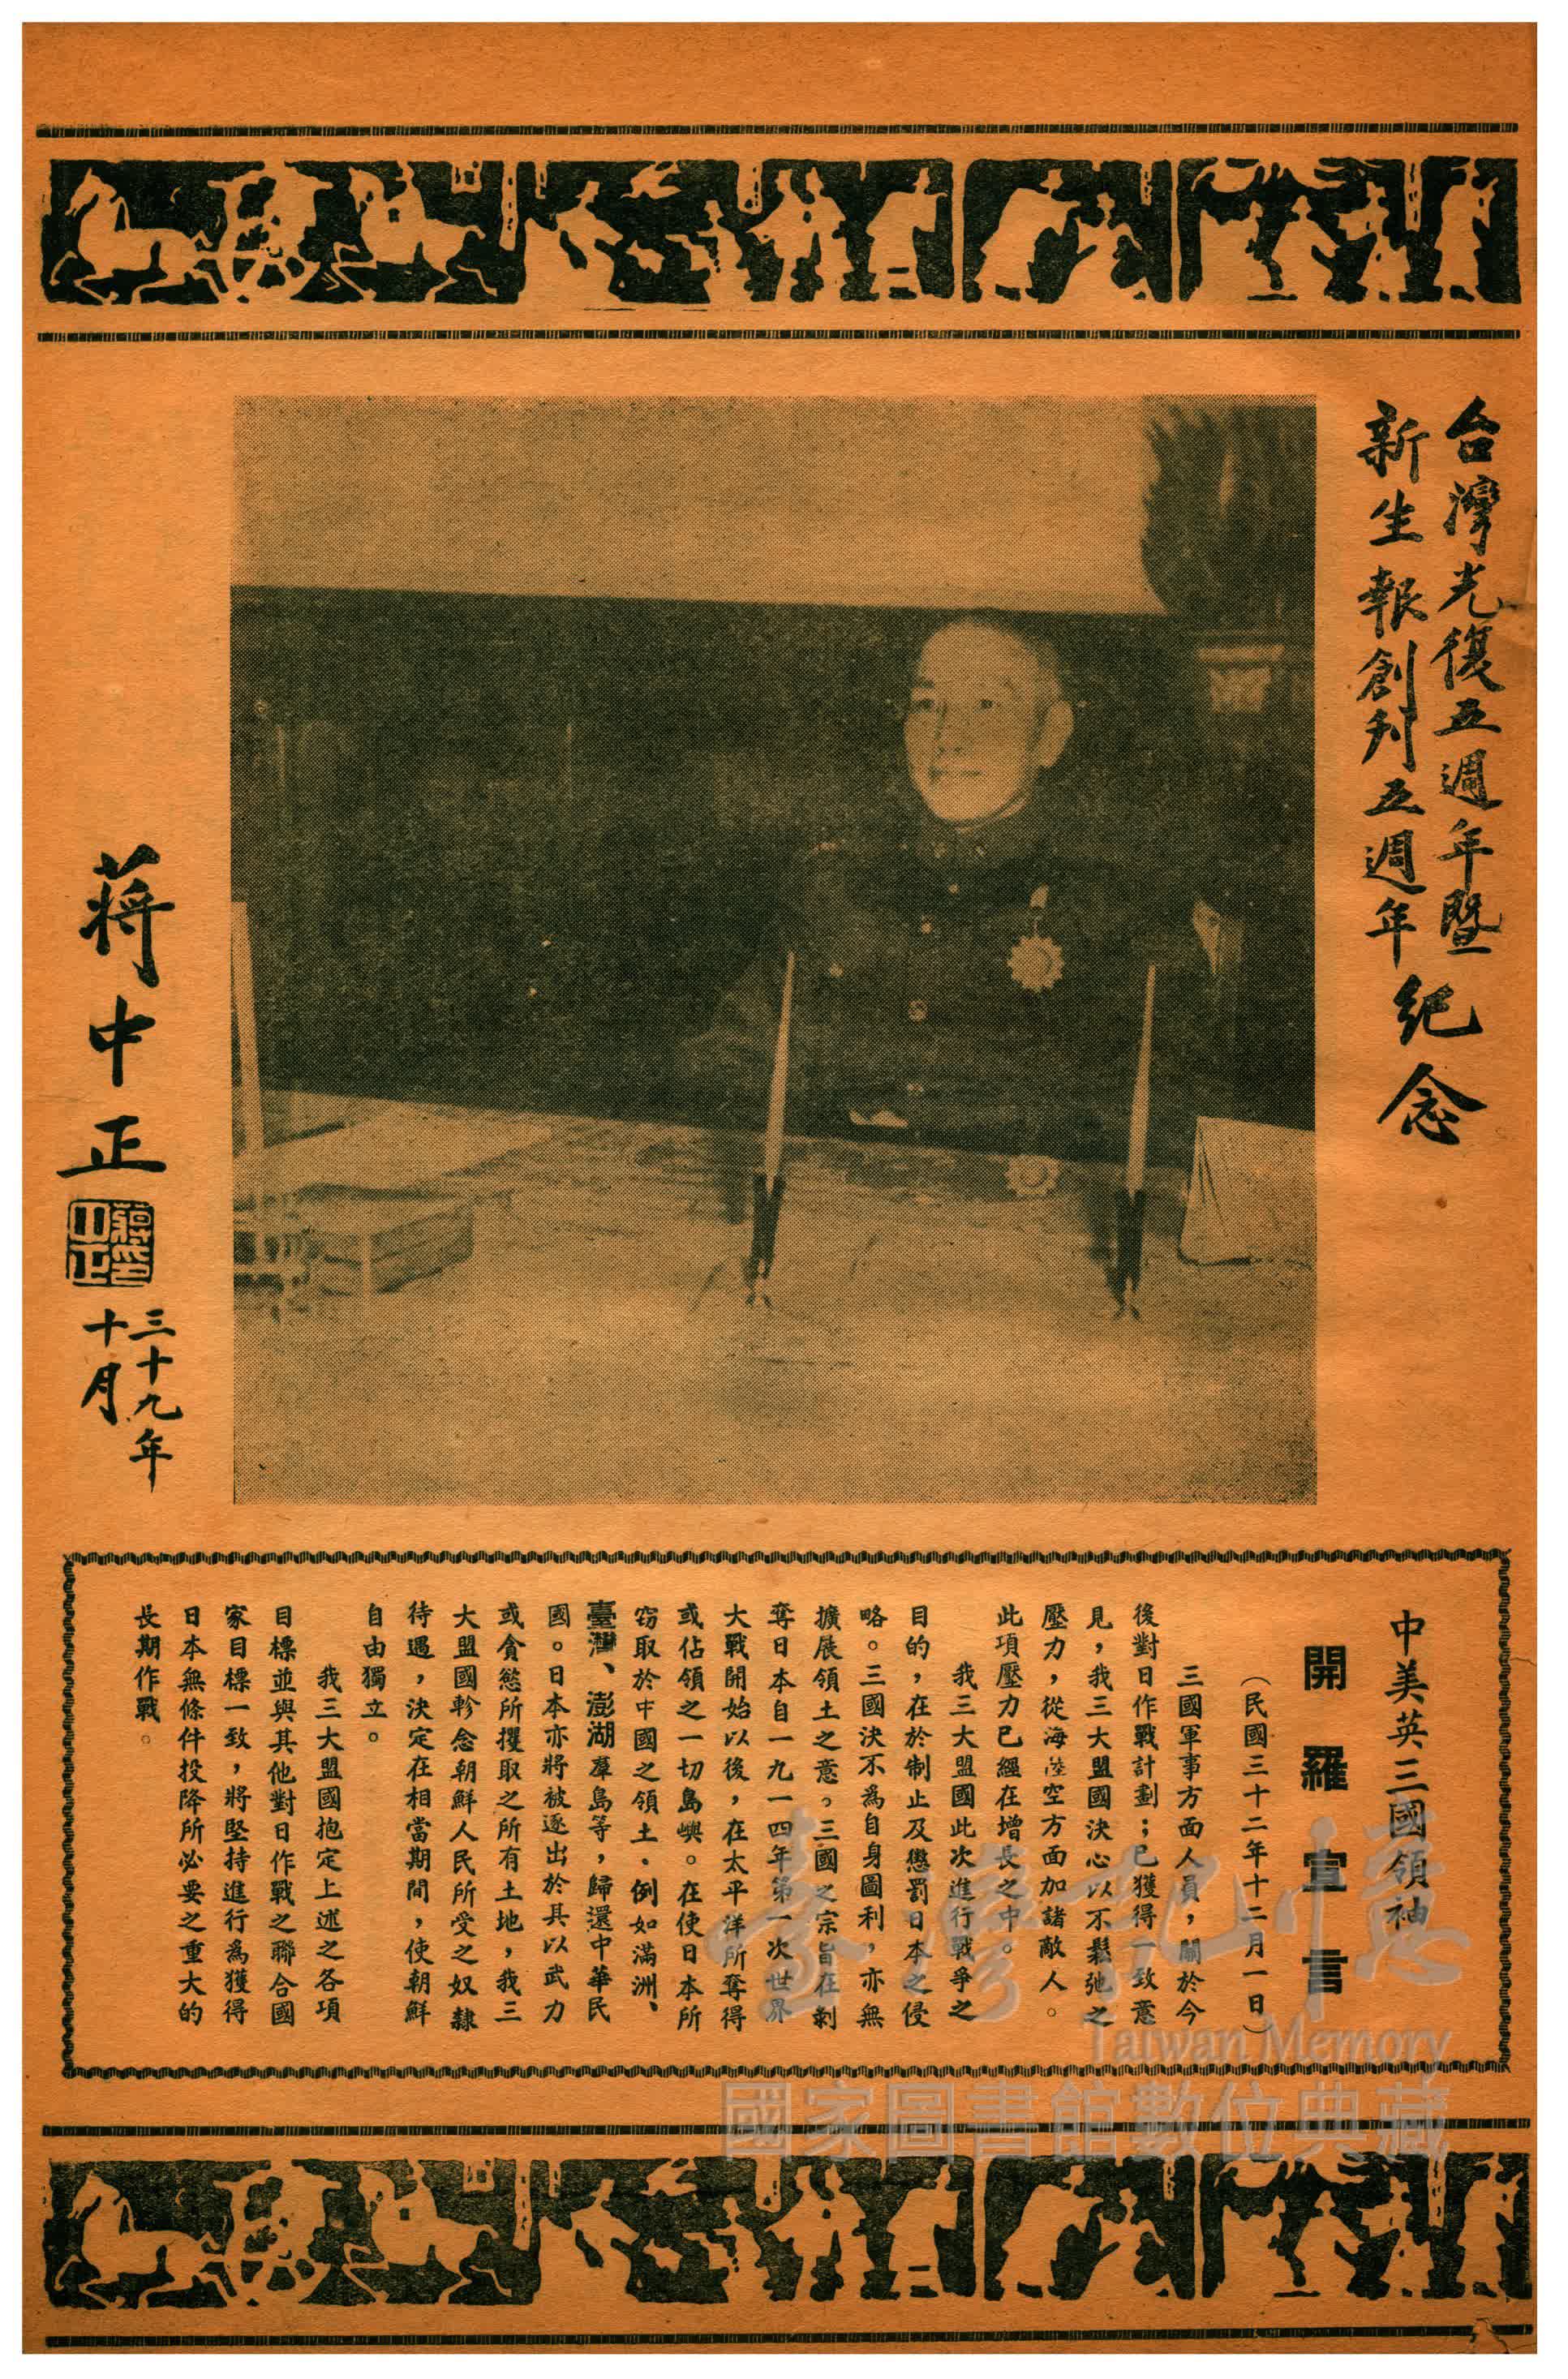 台灣光復五週年暨
新生報創刊五週年紀念
蔣中正
蔣中正印
三十九年
十月
中美英三國領袖
開羅宣言
（民國三十二年十二月一日）
三國軍事方面人員，關於今
後對日作戰計劃；已獲得一致意
見，我三大盟國決心以不鬆弛之
壓力，從海陸空方面加諸敵人。
此項壓力已經在增長之中。
我三大盟國此次進行戰爭之
目的，在於制止及懲罰日本之侵
略。三國決不為自身圖利，亦無
擴展領土之意。三國之宗旨在剝
奪日本自一九一四年第一次世界
大戰開始以後，在太平洋所奪得
或佔領之一切島嶼。在使日本所
窃取於中國之領土．例如滿洲、
臺灣、澎湖羣島等，歸還中華民
國。日本亦將被逐出於其以武力
或貪慾所攫取之所有土地，我三
大盟國軫念朝鮮人民所受之奴隸
待遇，決定在相當期間，使朝鮮
自由獨立。
我三大盟國抱定上述之各項
目標並與其他對日作戰之聯合國
家目標一致，將堅持進行為獲得
日本無條件投降所必要之重大的
長期作戰。
臺灣記憶
Taiwan Memory
國家圖書館數位典藏